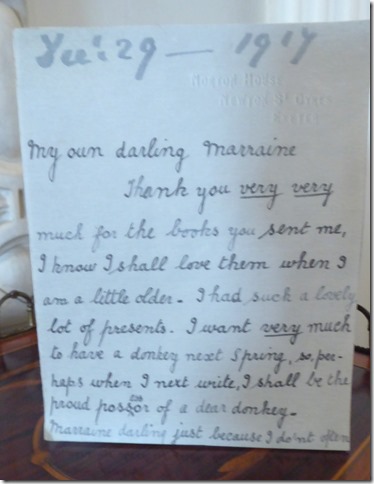 Dec: 29 — 1917
Norton House
Newton St Cyres
Exeter
My own darling Marraine
Thank you very very
much for the books you sent me,
I know I shall love them when I
am a little older - I had such a lovely
lot of presents. I want very much
to have a donkey next spring, so, per-
haps when I next write, I shall be the
proud possessor of a dear donkey-
Marraine darling just because I do'nt often